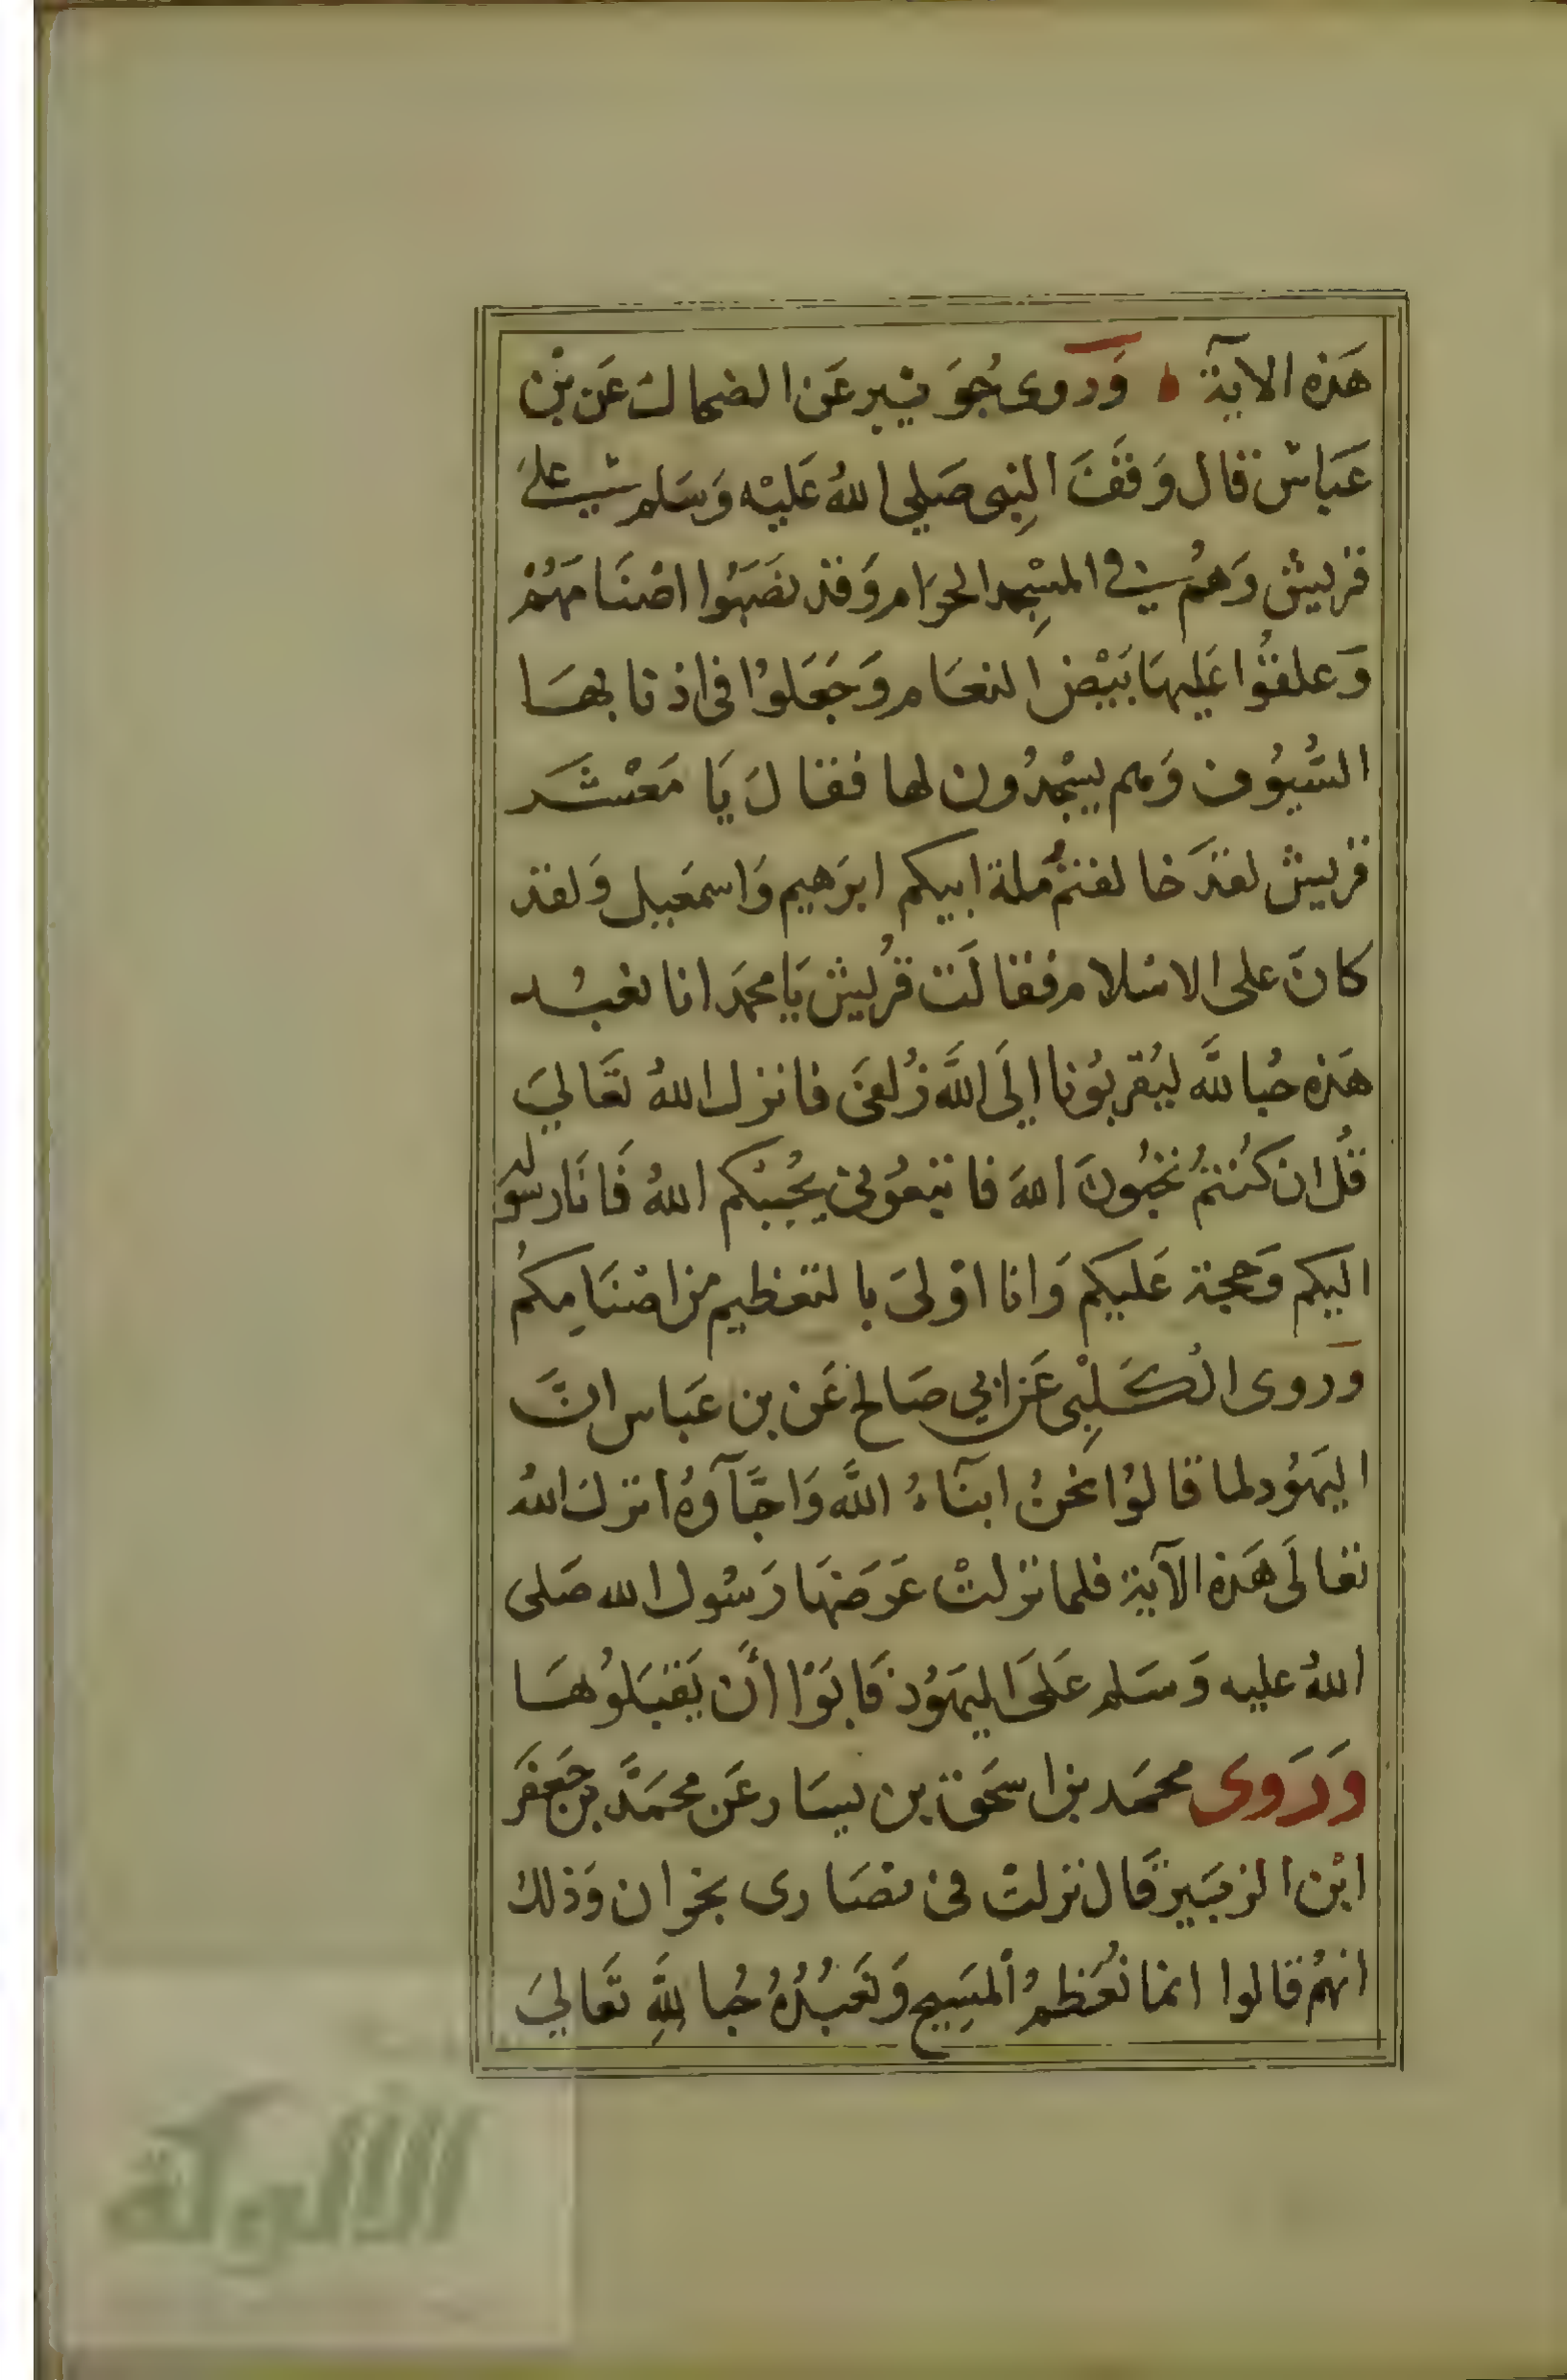 هَذه الاية وَرَوى جُوَيْبر عَن الضحاك عَن بْن
عَبَاس قال وَقَفَ النِبى صَلى اللهُ عَليْه وَسَلم على
قريش وَهُم في المسْجِد الحرَام وَقد نصَبَوا اصْنَامَهُمْ
وَعلقوُا عَليهَا بَيْض النعَام وَجَعَلوُا فى اذنابهَا
السُيوُف وَهم يسْجدُون لها فقالَ يَا مَعْشَر
قريش لقدَ خالفتمُ ملة ابيكم ابرَهيم وَاسمَعيل وَلقد
كانَ على الاسْلام فقالَت قُريش يَا محمَد انا نعبُد
هَذه حُبا للَّه ليُقربوُنا الَى اللَّه زُلفىَ فانزل اللهُ تَعَالىَ
قُل ان كُنتمُ تحِبُونَ اللهَ فاتبعوُنى يُحْببْكم اللهُ فَانَا رسُول
اليكم وَحجة عَليكم وَانا اوْلىَ بالتعَظيم من اصْنَامِكمُ
وَروى الْكَلْبِى عَن ابي صَالح عَن بن عَباس انَّ
اليَهوُد لما قالوُا نحْنُ ابنآءُ اللَّه وَاحبَّآوهُ انزل اللهُ
تعَالَى هَذه الآية فلما نزلتْ عَرَضهَا رَسُول الله صَلى
اللهُ عليه وَسَلم عَلىَ اليَهوُد فَابَوْا أَن يَقبَلوُهَا
وَرَوى محمَد بن اسحَق بن يسَار عَن محمَدَّ بن جَعفَر
ابْن الزبَيرقَال نزلتْ فى نصَارى نجران وَذلك
انهُم قالوا انما نُعَظمُ المَسِيح وَنَعَبُدُهُ حُبا للَّهِ تَعَالىَ
الألوكة